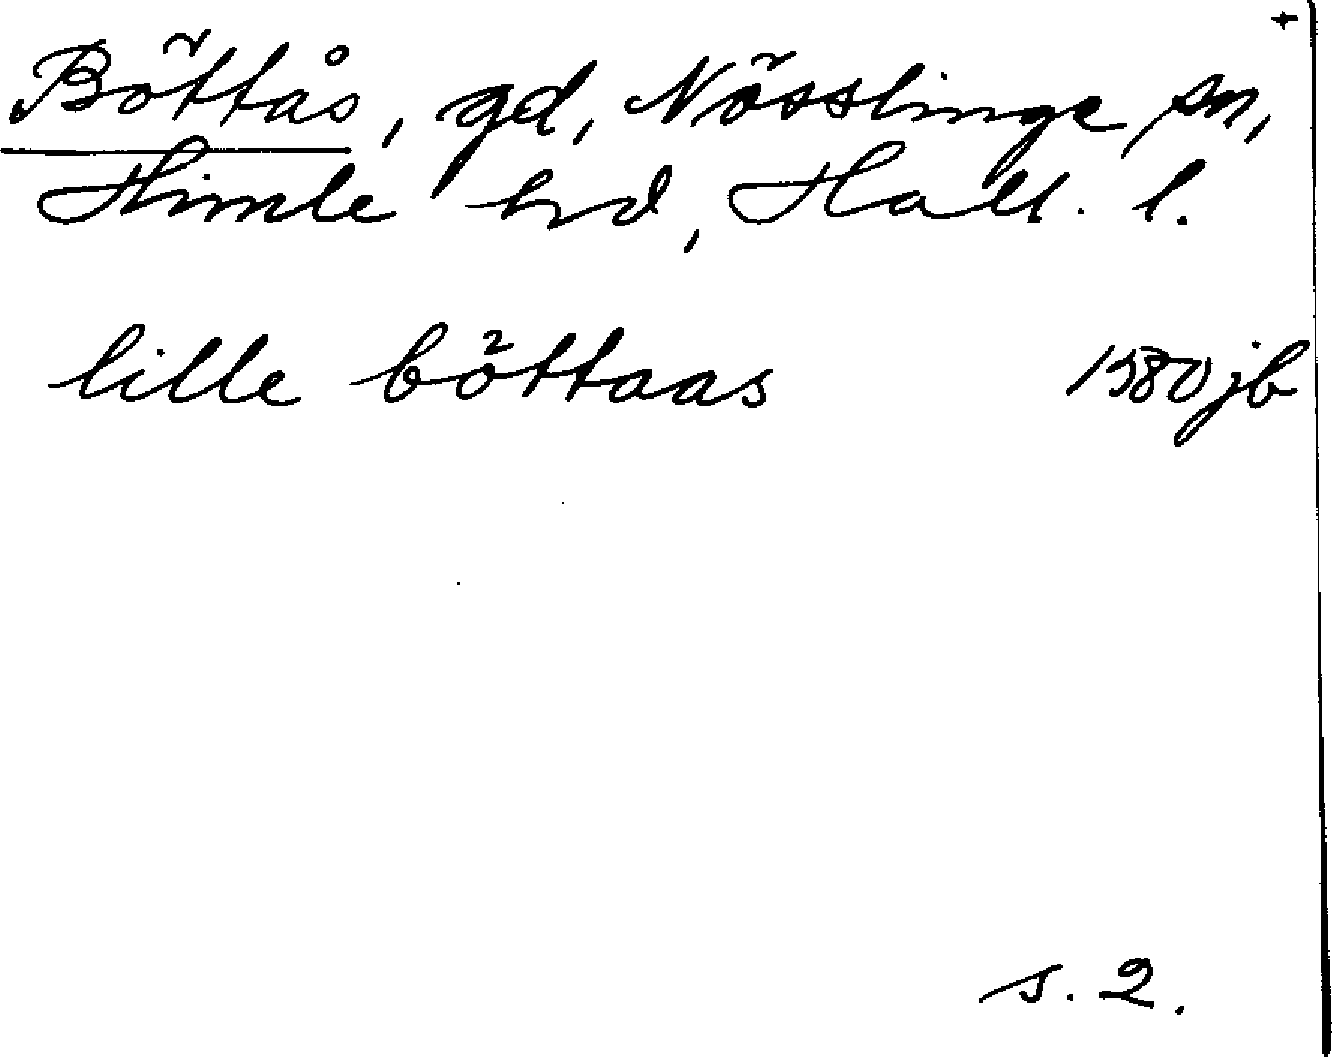 Böttås, gd, Nösslinge sn,
Himle hd, Hall. l.
lille böttaas 1580 jb
s. 2.